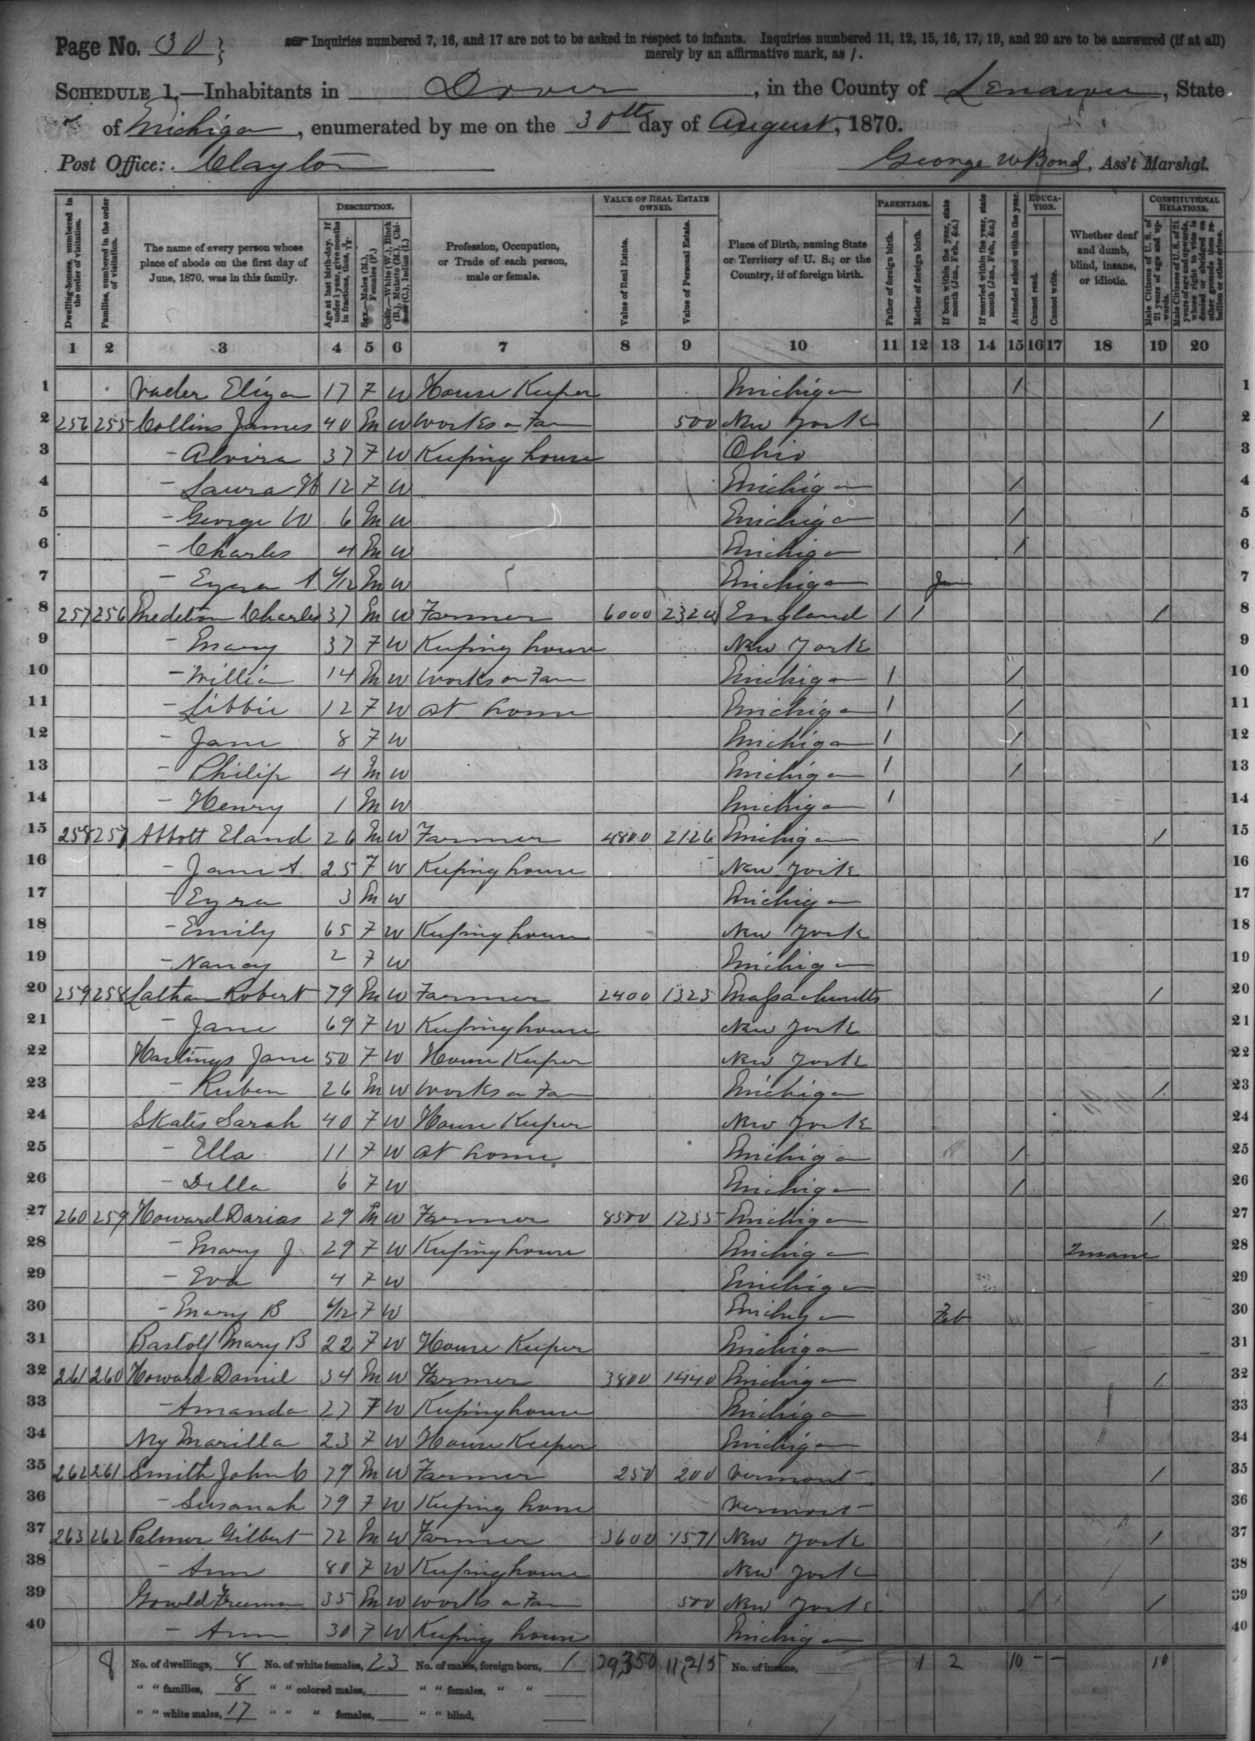 Page No. 30 } Inquiries numbered 7, 16, and 17 are not to be asked in respect to infants. Inquiries numbered 11, 12, 15, 16, 17, 19, and 20 are to be answered (if at all)
merely by an affirmative mark, as /.
SCHEDULE 1.—Inhabitants in Dover, in the County of Lenawee, State
of Michigan, enumerated by me on the 30th day of August, 1870.
Post Office: Clayton George W Bond, Ass't Marshal.
DESCRIPTION. VALUE OF REAL ESTATE OWNED. PARENTAGE. EDUCATION. CONSTITUTIONAL RELATIONS.
Dwelling-houses, numbered in the order of visitation.
Families, numbered in the order of visitation.
The name of every person whose place of abode on the first day of June, 1870, was in this family.
Age at last birth-day. If under 1 year, give months in fractions, thus, 3/12
Sex.—Males (M.), Females (F.)
Color.—White (W.), Black (B.), Mulatto (M.), Chinese (C.), Indian (I.)
Profession, Occupation, or Trade of each person, male or female.
Value of Real Estate.
Value of Personal Estate.
Place of Birth, naming State or Territory of U. S.; or the Country, if of foreign birth.
Father of foreign birth.
Mother of foreign birth.
If born within the year, state month (Jan., Feb., &c.)
If married within the year, state month (Jan., Feb., &c.)
Attended school within the year.
Cannot read.
Cannot write.
Whether deaf and dumb, blind, insane, or idiotic.
Male Citizens of U. S. of 21 years of age and upwards.
Male Citizens of U. S. of 21 years of age and upwards, whose right to vote is denied or abridged on other grounds than rebellion or other crime.
1 2 3 4 5 6 7 8 9 10 11 12 13 14 15 16 17 18 19 20
1 Vader Eliza 17 F W House Keeper Michigan / 1
2 256 255 Collins James 40 M W Works on Far 500 New York / 2
3 – Alvira 37 F W Keeping house Ohio 3
4 – Laura 12 F W Michigan / 4
5 – George W 6 M W Michigan / 5
6 – Charles 4 M W Michigan / 6
7 – Ezra A /12 M W Michigan Jan 7
8 257 256 Charles 37 M W Farmer 6000 England / / / 8
9 – Mary 37 F W Keeping house New York 9
10 – William 14 M W Works on Far Michigan / / 10
11 – Libbie 12 F W at home Michigan / / 11
12 – Jane 8 F W Michigan / / 12
13 – Philip 4 M W Michigan / / 13
14 – Henry 1 M W Michigan / 14
15 258 257 Abbott Eland 26 M W Farmer 4800 2126 Michigan / 15
16 – Jane A. 25 F W Keeping house New York 16
17 – Ezra 3 M W Michigan 17
18 – Emily 65 F W Keeping house New York 18
19 – Nancy 2 F W Michigan 19
20 259 258 Lathan Robert 79 M W Farmer 2400 1325 Massachusetts / 20
21 – Jane 69 F W Keeping house New York 21
22 Hastings Jane 50 F W House Keeper New York 22
23 – Ruben 26 M W Works on Far Michigan / 23
24 Skates Sarah 40 F W House Keeper New York 24
25 – Ella 11 F W at home Michigan / 25
26 – Della 6 F W Michigan / 26
27 260 259 Howard Darias 29 M W Farmer 8500 1255 Michigan / 27
28 – Mary J. 29 F W Keeping house Michigan Insane 28
29 – Eva 4 F W Michigan 29
30 – Mary B /12 F W Michigan Feb 30
31 Mary B 22 F W House Keeper Michigan 31
32 261 260 Howard Daniel 34 M W Farmer 3800 1440 Michigan / 32
33 – Amanda 27 F W Keeping house Michigan 33
34 Ny Marilla 23 F W House Keeper Michigan 34
35 262 261 Smith John C 79 M W Farmer 250 200 Vermont / 35
36 – Susanah 79 F W Keeping house Vermont 36
37 263 262 Palmer Gilbert 72 M W Farmer 3600 1571 New York / 37
38 – Ann 80 F W Keeping house New York 38
39 Gowld Freeman 35 M W Works on Far 500 New York / 39
40 – Ann 30 F W Keeping house Michigan 40
8 No. of dwellings, 8 No. of white females, 23 No. of males, foreign born, 1 29,350 11,215 No. of insane, 1 2 10 – – 10
" " families, 8 " " colored males, " " females, " "
" " white males, 17 " " " females, " " blind,